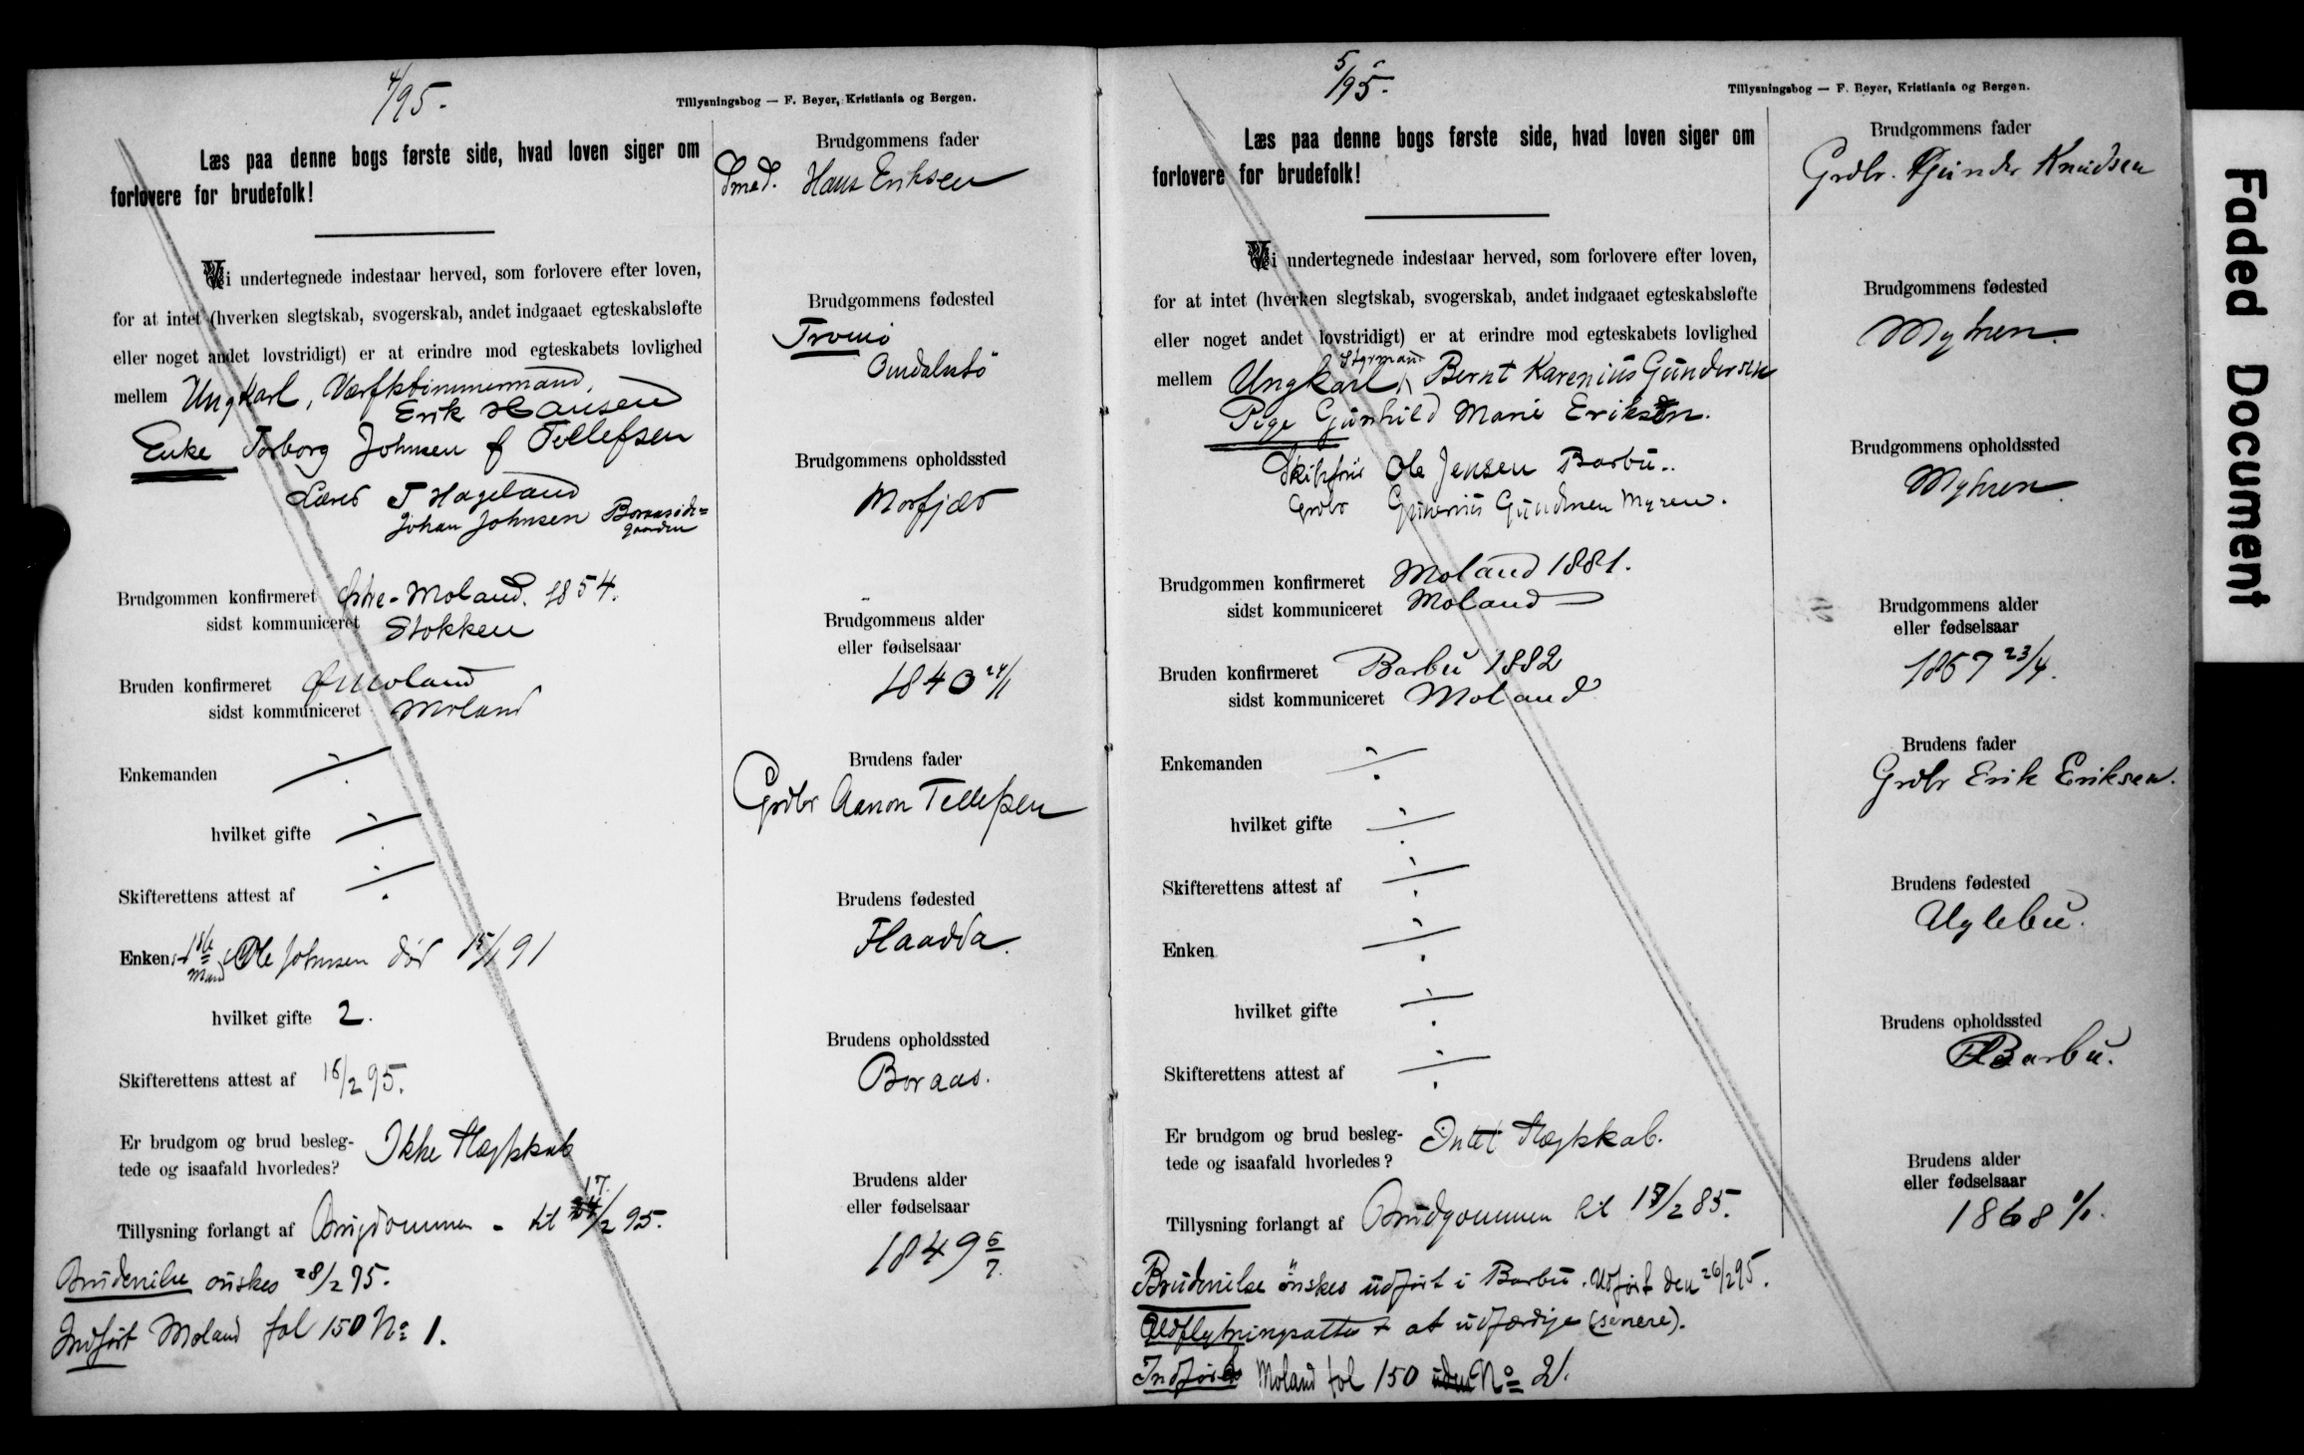 4/95.
Tillysningsbog — F. Beyer, Kristiania og Bergen.
Læs paa denne bogs første side, hvad loven siger om
forlovere for brudefolk!
Vi undertegnede indestaar herved, som forlovere efter loven,
for at intet (hverken slegtskab, svogerskab, andet indgaaet egteskabsløfte
eller noget andet lovstridigt) er at erindre mod egteskabets lovlighed
mellem Ungkarl, Værftstømmermand,
Erik Hansen
Enke Torborg Johnsen f Tellefsen
T Hageland
Johan Johnsen
Brudgommen konfirmeret Østre-Moland. 1854.
sidst kommuniceret Stokken
Bruden konfirmeret Ø Moland
sidst kommuniceret Moland
Enkemanden ÷
hvilket gifte ÷
Skifterettens attest af ÷
Enken, 1ste Mand Ole Johnsen død 15/1 91
hvilket gifte 2.
Skifterettens attest af 16/2 95.
Er brudgom og brud besleg-
tede og isaafald hvorledes? Ikke Slægtskab
Tillysning forlangt af Brugdommen - til 17/2 95.
Brudevielse ønskes 28/2 95.
Indført Moland fol 150 No 1.
Brudgommens fader
Smed. Hans Eriksen
Brudgommens fødested
Tromø
Omdalsbø
Brudgommens opholdssted
Morfjær
Brudgommens alder
eller fødselsaar
1840 24/11
Brudens fader
Grdbr Aanon Tellefsen
Brudens fødested
Flaadda.
Brudens opholdssted
Boraas.
Brudens alder
eller fødselsaar
1849 6/7.
5/95.
Tillysningsbog — F. Beyer, Kristiania og Bergen.
Læs paa denne bogs første side, hvad loven siger om
forlovere for brudefolk!
Vi undertegnede indestaar herved, som forlovere efter loven,
for at intet (hverken slegtskab, svogerskab, andet indgaaet egteskabsløfte
eller noget andet lovstridigt) er at erindre mod egteskabets lovlighed
mellem Ungkarl, Styrmand Bernt Karenius Gundersen
Pige Gunhild Marie Eriksen.
Ole Jensen Barbu..
Grdbr Gundersen Myren.
Brudgommen konfirmeret Moland 1881.
sidst kommuniceret Moland
Bruden konfirmeret Barbu 1882
sidst kommuniceret Moland
Enkemanden ÷
hvilket gifte ÷
Skifterettens attest af ÷
Enken ÷
hvilket gifte ÷
Skifterettens attest af ÷
Er brudgom og brud besleg-
tede og isaafald hvorledes? Intet Slægtskab.
Tillysning forlangt af Brudgommen til 17/2 85.
Brudevielse ønskes udført i Barbu. Udført den 26/2 95.
Udflytningsattest at udfærdige (senere).
Indført Moland fol 150 No 2.
Brudgommens fader
Grdbr. Gunder Knudsen
Brudgommens fødested
Myhren.
Brudgommens opholdssted
Myhren
Brudgommens alder
eller fødselsaar
1867 23/4.
Brudens fader
Grdbr Erik Eriksen.
Brudens fødested
Uglebu.
Brudens opholdssted
Barbu.
Brudens alder
eller fødselsaar
1868
Faded Document